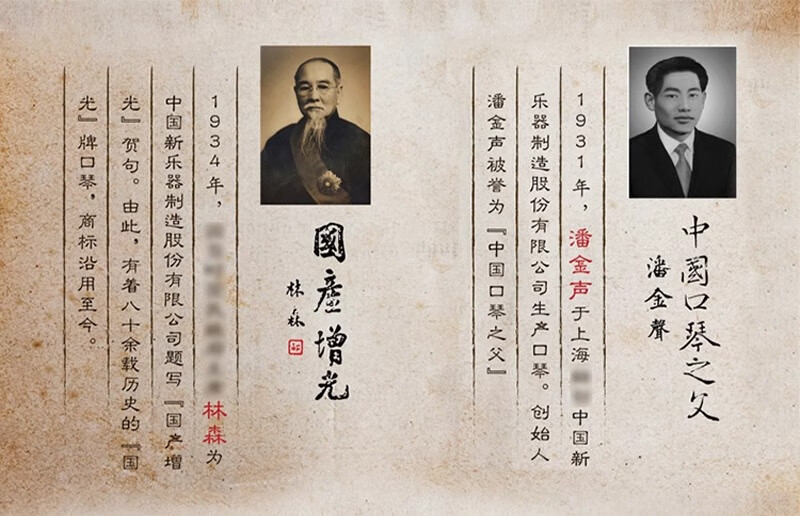 中國口琴之父
潘金聲
1931年，潘金声于上海 中国新
乐器制造股份有限公司生产口琴。创始人
潘金声被誉为『中国口琴之父』
國產增光
林森
1934年， 林森为
中国新乐器制造股份有限公司题写『国产增
光』贺句。由此，有着八十余载历史的『国
光』牌口琴，商标沿用至今。